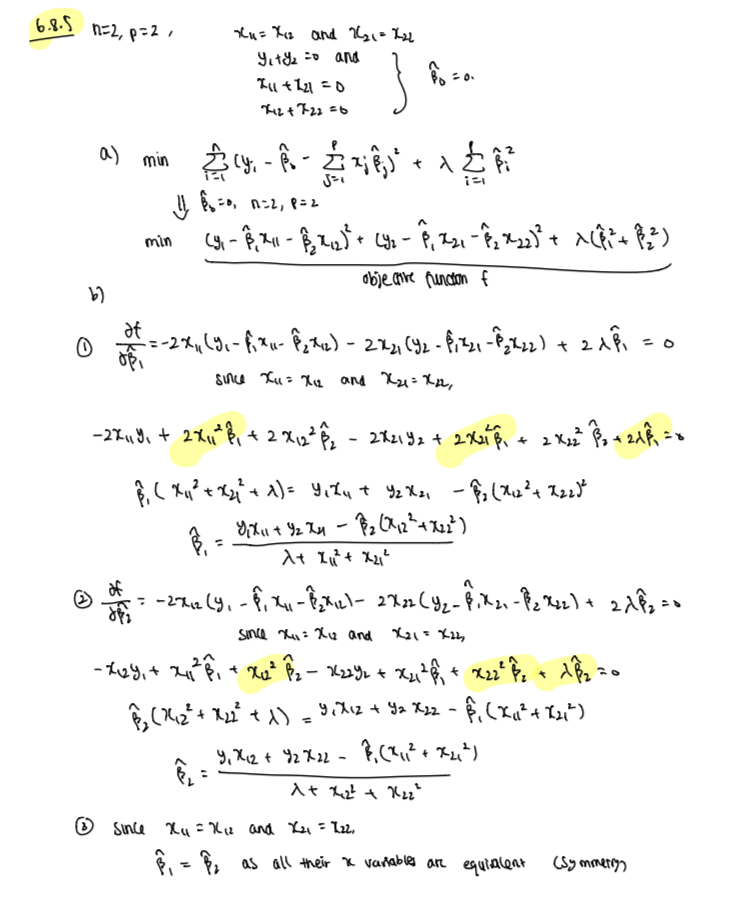 6.8.5 n=2, p=2, x₁₁ = x₁₂ and x₂₁ = x₂₂
y₁+y₂ =0 and
x₁₁ + x₂₁ = 0 } β̂₀ = 0.
x₁₂ + x₂₂ = 0
a) min Σᵢ₌₁ⁿ (yᵢ - β̂₀ - Σⱼ₌₁ᵖ xⱼβ̂ⱼ)² + λ Σᵢ₌₁ᵖ β̂ᵢ²
⇓ β̂₀=0, n=2, p=2
min (y₁ - β̂₁x₁₁ - β̂₂x₁₂)² + (y₂ - β̂₁x₂₁ - β̂₂x₂₂)² + λ(β̂₁² + β̂₂²)
objective function f
b)
① ∂f/∂β̂₁ = -2x₁₁(y₁ - β̂₁x₁₁ - β̂₂x₁₂) - 2x₂₁(y₂ - β̂₁x₂₁ - β̂₂x₂₂) + 2λβ̂₁ = 0
since x₁₁ = x₁₂ and x₂₁ = x₂₂,
-2x₁₁y₁ + 2x₁₁²β̂₁ + 2x₁₂²β̂₂ - 2x₂₁y₂ + 2x₂₁²β̂₁ + 2x₂₂²β̂₂ + 2λβ̂₁ = 0
β̂₁(x₁₁² + x₂₁² + λ) = y₁x₁₁ + y₂x₂₁ - β̂₂(x₁₂² + x₂₂)²
β̂₁ = (y₁x₁₁ + y₂x₂₁ - β̂₂(x₁₂² + x₂₂²)) / (λ + x₁₁² + x₂₁²)
② ∂f/∂β̂₂ = -2x₁₂(y₁ - β̂₁x₁₁ - β̂₂x₁₂) - 2x₂₂(y₂ - β̂₁x₂₁ - β̂₂x₂₂) + 2λβ̂₂ = 0
since x₁₁ = x₁₂ and x₂₁ = x₂₂,
-x₁₂y₁ + x₁₁²β̂₁ + x₁₂²β̂₂ - x₂₂y₂ + x₂₁²β̂₁ + x₂₂²β̂₂ + λβ̂₂ = 0
β̂₂(x₁₂² + x₂₂² + λ) = y₁x₁₂ + y₂x₂₂ - β̂₁(x₁₁² + x₂₁²)
β̂₂ = (y₁x₁₂ + y₂x₂₂ - β̂₁(x₁₁² + x₂₁²)) / (λ + x₁₂² + x₂₂²)
③ since x₁₁ = x₁₂ and x₂₁ = x₂₂,
β̂₁ = β̂₂ as all their x variables are equivalent (symmetry)